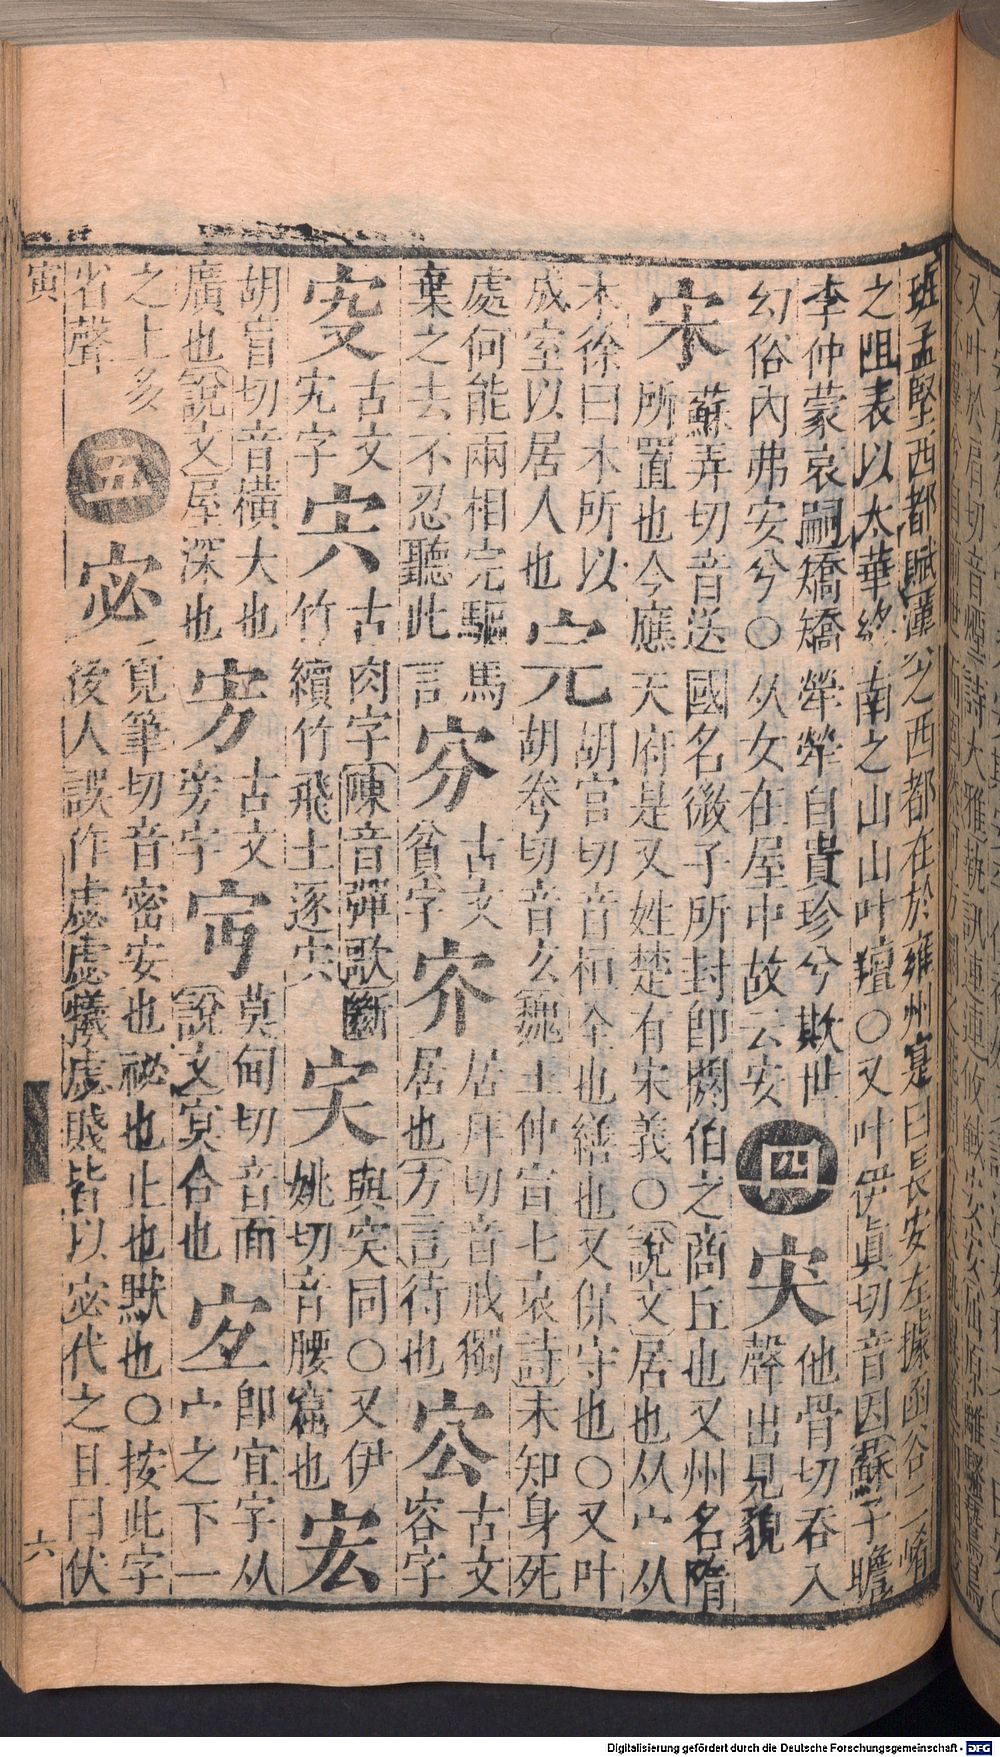 班孟堅西都賦漢之西都在於雍州寔曰長安左據函谷二崤
之阻表以太華終南之山山叶羶○又叶伊眞切音因蘇子瞻
李仲蒙哀嗣矯矯犖犖自貴珍兮欺世
幻俗內弗安兮○从女在屋中故云安
四
宊 他骨切吞入
聲出見貌
宋 蘇弄切音送國名微子所封卽閼伯之商丘也又州名隋
所置也今應天府是又姓楚有宋義○說文居也从宀从
木徐曰木所以
成室以居人也
完 胡官切音桓全也繕也又保守也○又叶
胡卷切音玄魏王仲宣七哀詩未知身死
處何能兩相完驅馬
棄之去不忍聽此言
古文
貧字
㝏 居拜切音戒獨
居也方言待也
㝐 古文
容字
古文
宄字
宍 古肉字陳音彈歌斷
竹續竹飛土逐宍
宎 與窔同○又伊
姚切音腰窟也
宏
胡盲切音橫大也
廣也說文屋深也
古文
旁字
莫甸切音面
說文冥合也
宐 卽宜字从
宀之下一
之上多
省聲
五
宓 覓筆切音密安也祕也止也默也○按此字
後人誤作虙虙犧虙賤皆以宓代之且曰伏
寅
六
Digitalisierung gefördert durch die Deutsche Forschungsgemeinschaft - DFG